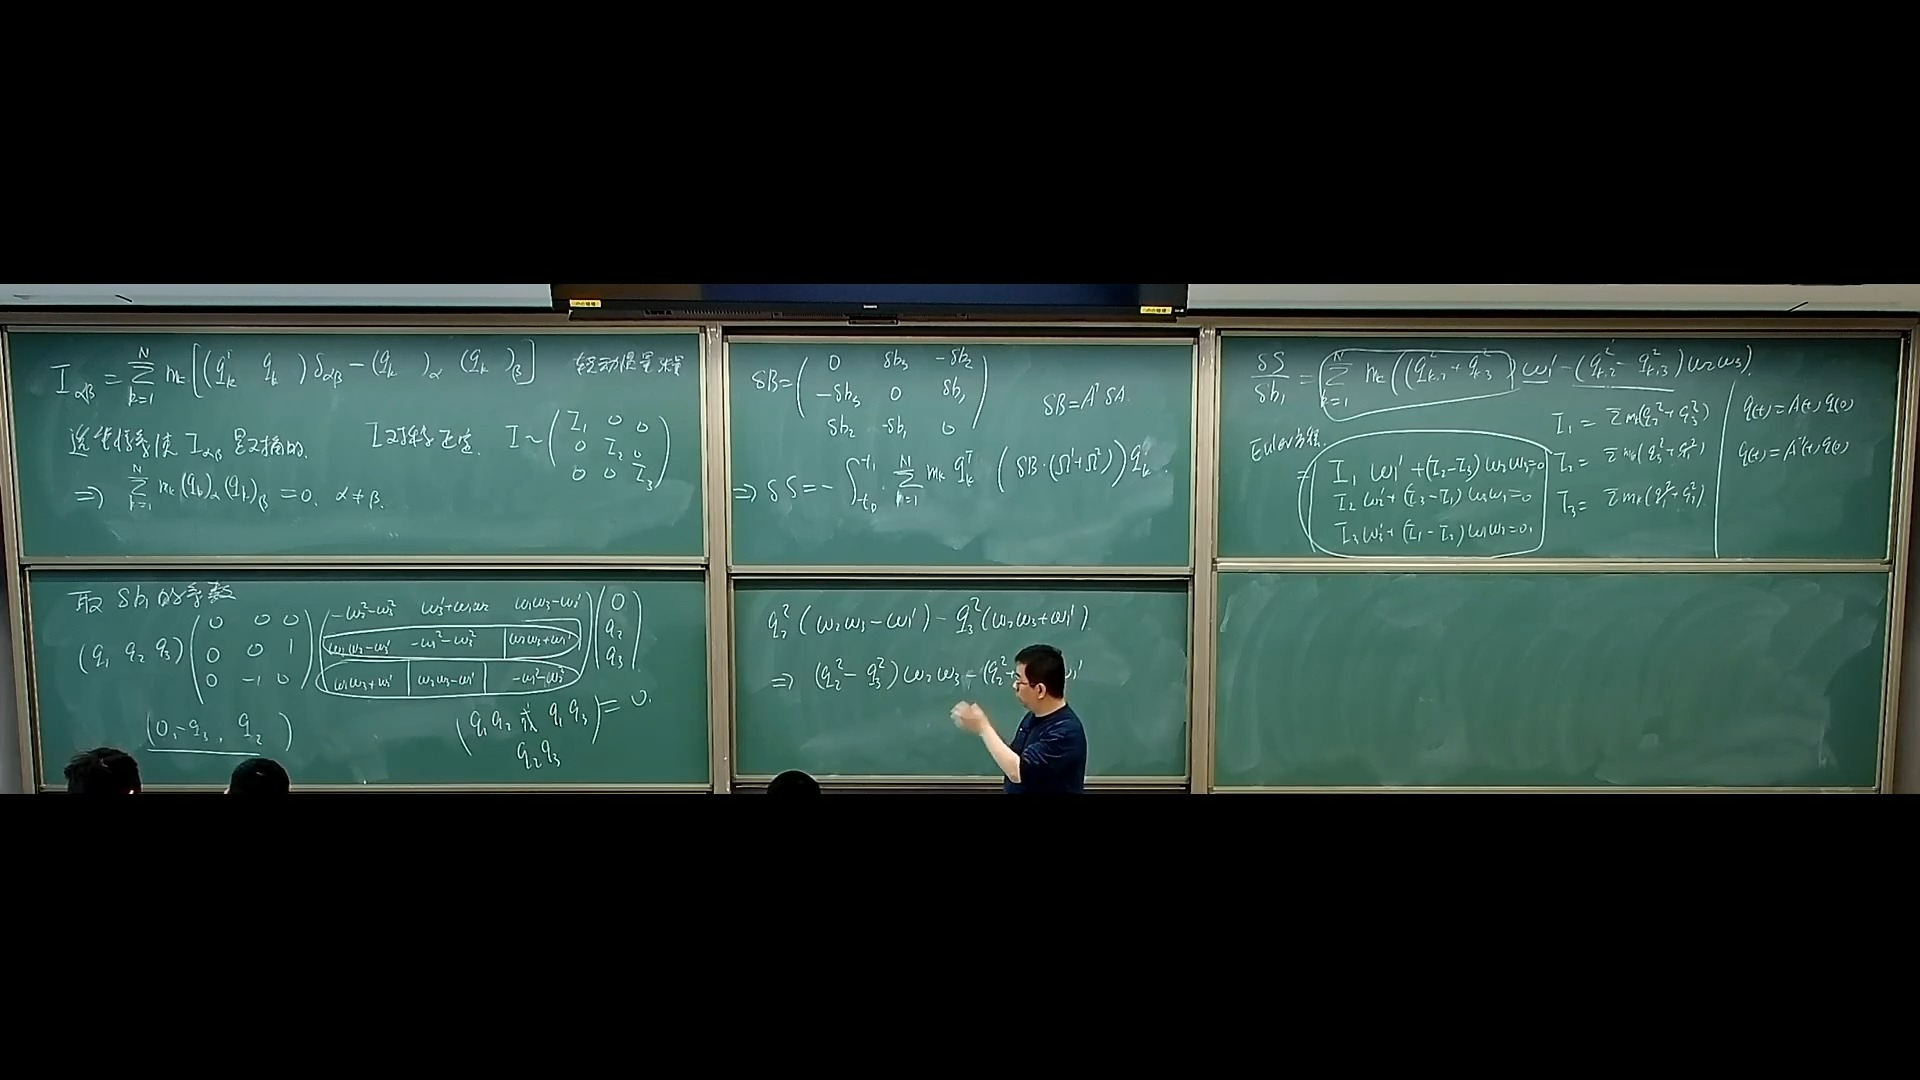 I_{αβ} = \sum_{k=1}^{N} m_k [(q_k q_k) δ_{αβ} − (q_k)_α (q_k)_β] 转动惯量张量
选坐标系使 I_{αβ} 是对角的. I 对称正定. I ~ \begin{pmatrix} I_1 & 0 & 0 \\ 0 & I_2 & 0 \\ 0 & 0 & I_3 \end{pmatrix}
⇒ \sum_{k=1}^{N} m_k (q_k)_α (q_k)_β = 0. α ≠ β.
取 δb_1 的系数
(q_1 q_2 q_3) \begin{pmatrix} 0 & 0 & 0 \\ 0 & 0 & 1 \\ 0 & -1 & 0 \end{pmatrix} \begin{pmatrix} -ω_2^2-ω_3^2 & ω_3'+ω_1ω_2 & ω_1ω_3-ω_2' \\ ω_1ω_2-ω_3' & -ω_1^2-ω_3^2 & ω_2ω_3+ω_1' \\ ω_1ω_3+ω_2' & ω_2ω_3-ω_1' & -ω_1^2-ω_2^2 \end{pmatrix} \begin{pmatrix} 0 \\ q_2 \\ q_3 \end{pmatrix}
(0, -q_3, q_2)
(q_1q_2 或 q_1q_3 q_2q_3) = 0.
δB = \begin{pmatrix} 0 & δb_3 & -δb_2 \\ -δb_3 & 0 & δb_1 \\ δb_2 & -δb_1 & 0 \end{pmatrix} δB = A^{-1} δA.
⇒ δS = − \int_{t_0}^{t_1} \sum_{k=1}^{N} m_k q_k^T (δB·(Ω'+Ω^2)) q_k.
q_2^2 (ω_2ω_3 − ω_1') − q_3^2 (ω_2ω_3 + ω_1')
⇒ (q_2^2 − q_3^2) ω_2 ω_3 − (q_2^2 +
\frac{δS}{δb_1} = \sum_{k=1}^{N} m_k ((q_{k,2}^2 + q_{k,3}^2) ω_1' − (q_{k,2}^2 − q_{k,3}^2) ω_2ω_3).
Euler方程.
I_1 ω_1' + (I_2 − I_3) ω_2ω_3 = 0
I_2 ω_2' + (I_3 − I_1) ω_3ω_1 = 0
I_3 ω_3' + (I_1 − I_2) ω_1ω_2 = 0.
I_1 = Σ m_k (q_2^2 + q_3^2)
I_2 = Σ m_k (q_3^2 + q_1^2)
I_3 = Σ m_k (q_1^2 + q_2^2)
q(t) = A(t) q(0)
q(t) = A^{-1}(t) q(0)